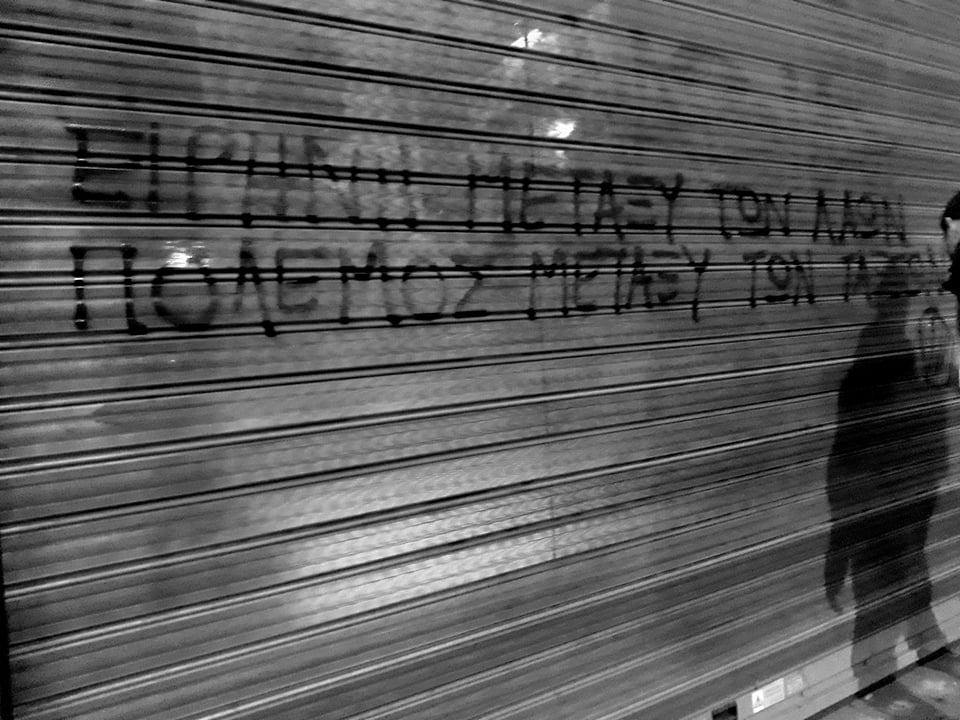 ΕΙΡΗΝΗ ΜΕΤΑΞΥ ΤΟΝ ΛΑΟΝ
ΠΟΛΕΜΟΣ ΜΕΤΑΞΥ ΤΟΝ ΤΑΞΕΟΝ